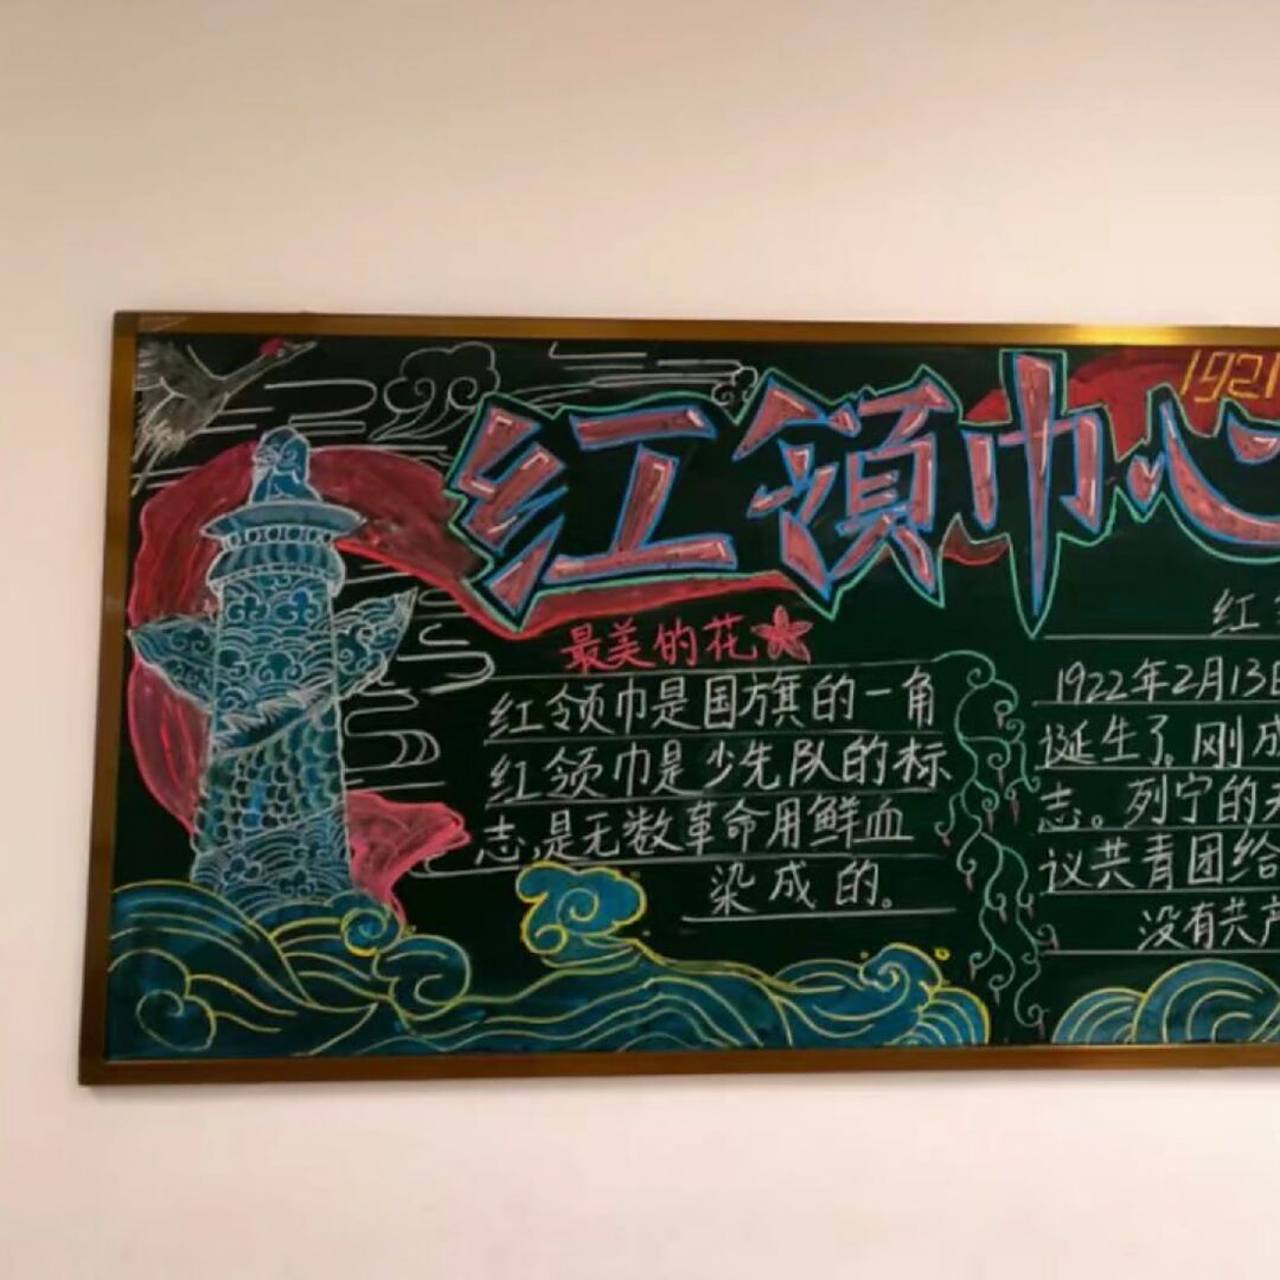 红领巾心
1921
最美的花
红领巾是国旗的一角
红领巾是少先队的标
志,是无数革命用鲜血
染成的。
红
1922年2月13日
诞生了。刚成
志。列宁的夫
议共青团给
没有共产